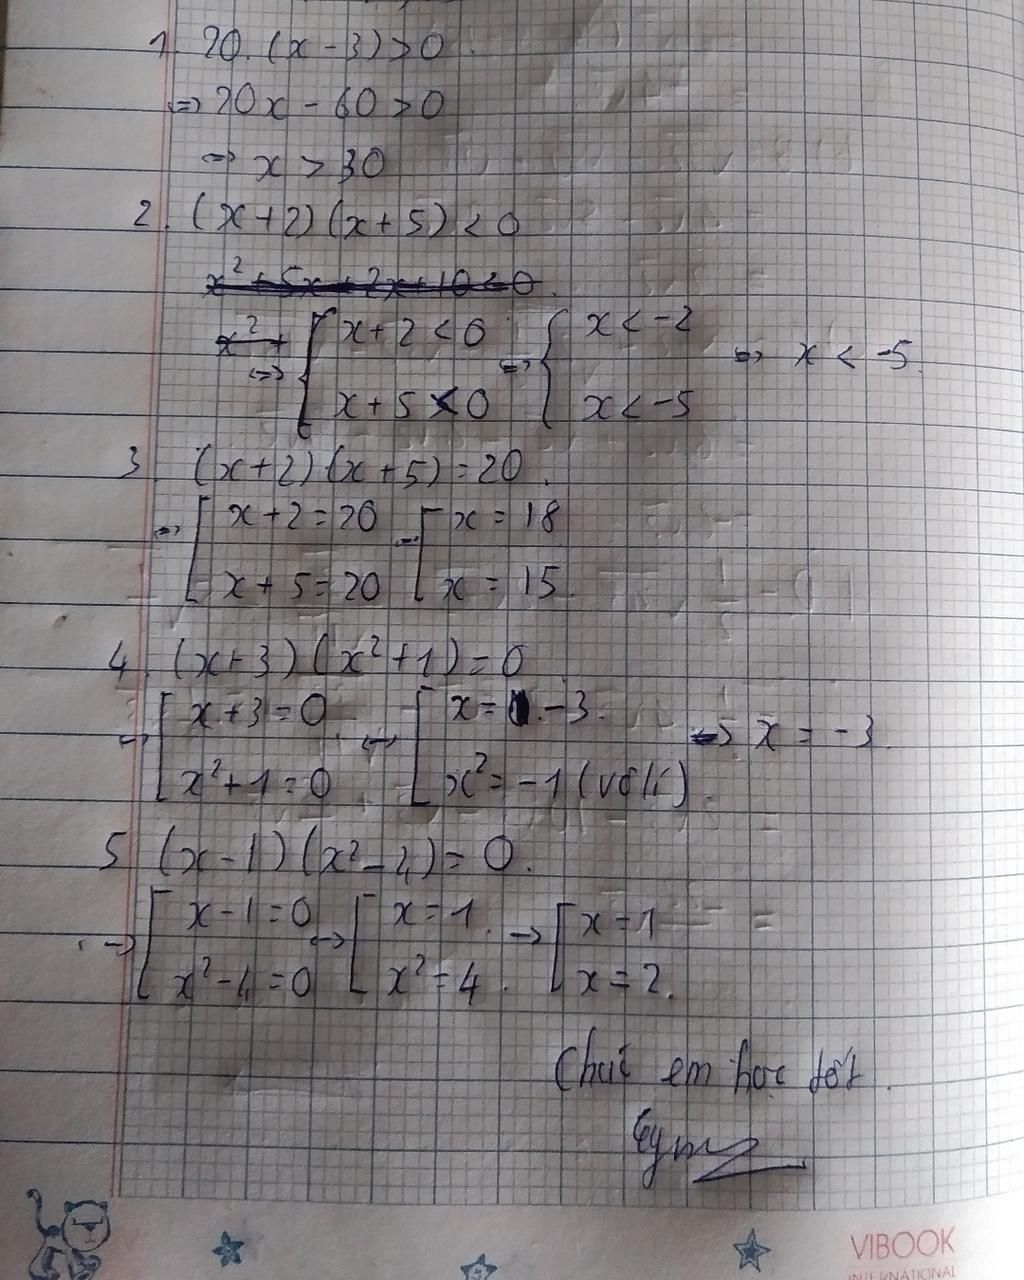 1. 20.(x-3)>0
⇔ 20x - 60 > 0
⇔ x > 30
2. (x+2)(x+5) < 0
x² + 5x + 2x + 10 < 0
x² +
⇔ { x+2 < 0 ⇔ { x < -2 ⇔ x < -5
x+5 < 0 x < -5
3. (x+2)(x+5) = 20.
⇔ [ x+2 = 20 ⇔ [ x = 18
x+5 = 20 x = 15.
4. (x+3)(x²+1) = 0
⇔ [ x+3 = 0 ⇔ [ x = -3. ⇔ x = -3.
x²+1 = 0 x² = -1 (vô lí).
5 (x-1)(x²-4) = 0.
⇔ [ x-1 = 0 ⇔ [ x = 1. ⇔ [ x = 1
x²-4 = 0 x² = 4. x = 2.
Chúc em học tốt.
VIBOOK
INTERNATIONAL